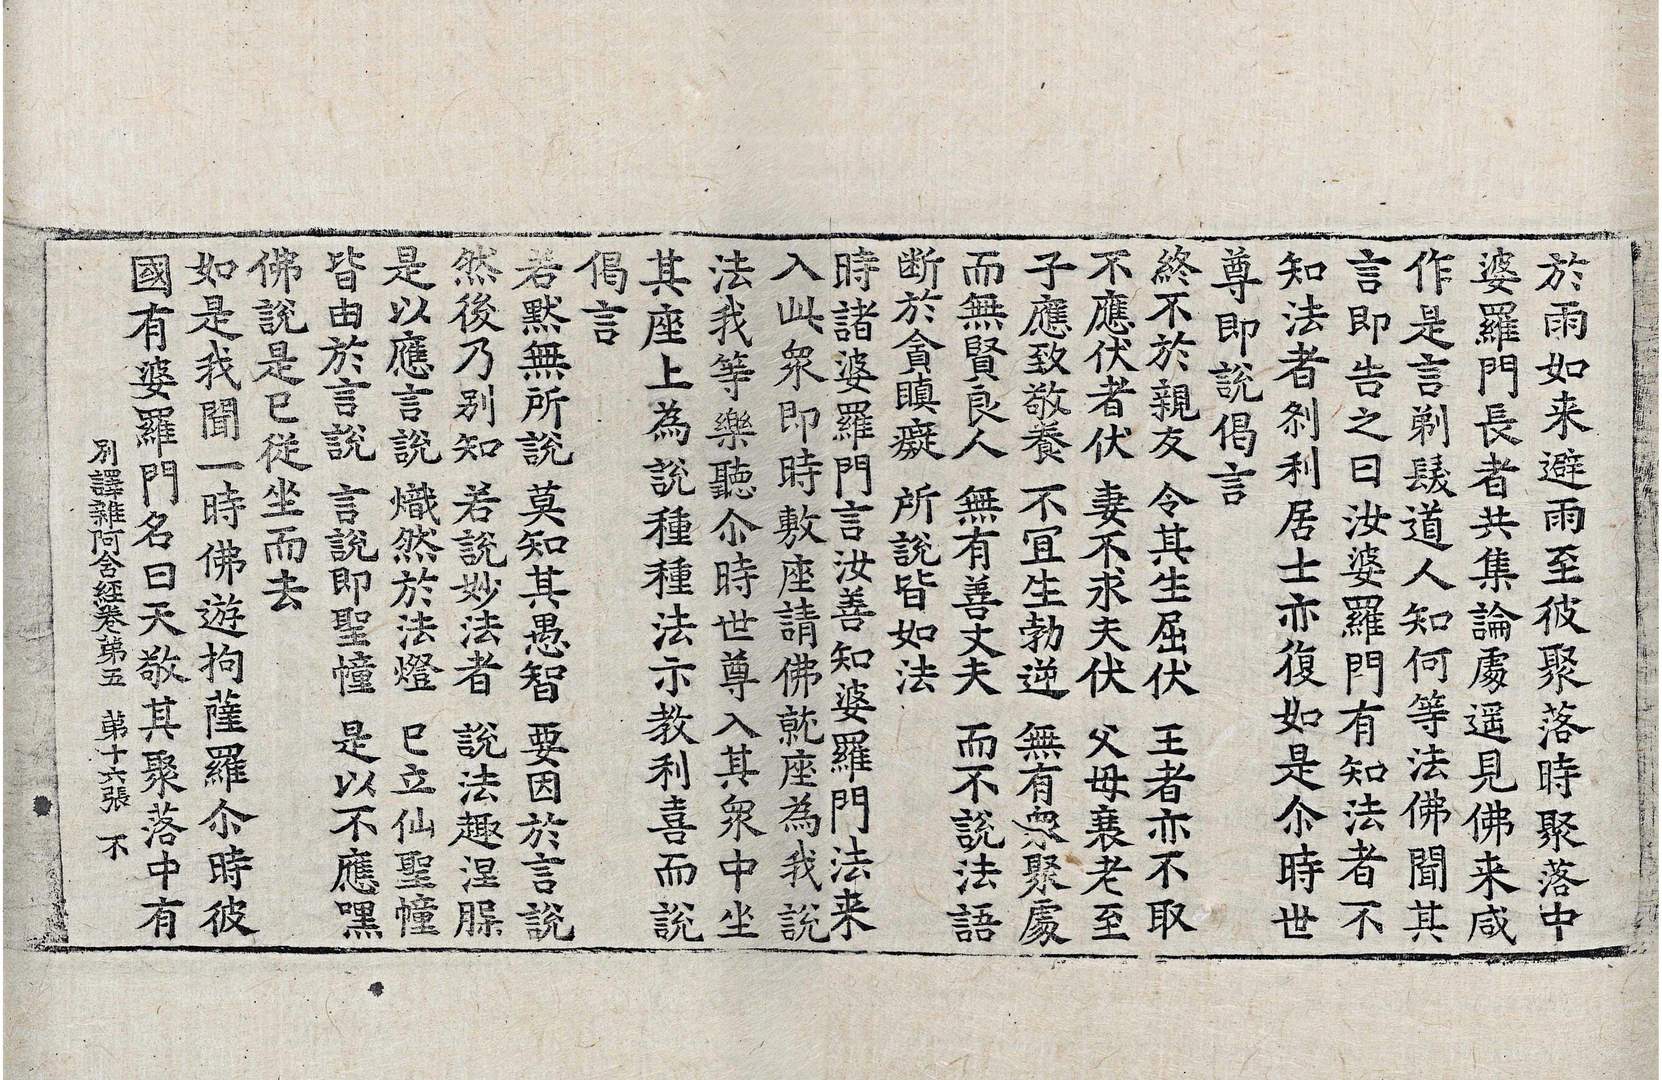 於雨如来避雨至彼聚落時聚落中
婆羅門長者共集論處遥見佛来咸
作是言剃髮道人知何等法佛聞其
言即告之曰汝婆羅門有知法者不
知法者刹利居士亦復如是尒時世
尊即說偈言
終不於親友 令其生屈伏 王者亦不取
不應伏者伏 妻不求夫伏 父母衰老至
子應致敬養 不冝生勃逆 無有衆聚處
而無賢良人 無有善丈夫 而不說法語
断於貪瞋癡 所說皆如法
時諸婆羅門言汝善知婆羅門法来
入此衆即時敷座請佛就座為我說
法我等樂聽尒時世尊入其衆中坐
其座上為說種種法示教利喜而說
偈言
若默無所說 莫知其愚智 要因於言說
然後乃別知 若說妙法者 說法趣涅脲
是以應言說 熾然於法燈 已立仙聖幢
皆由於言說 言說即聖幢 是以不應嘿
佛說是已從坐而去
如是我聞一時佛遊拘薩羅尒時彼
國有婆羅門名曰天敬其聚落中有
別譯雜阿含經卷第五 第十六張 不